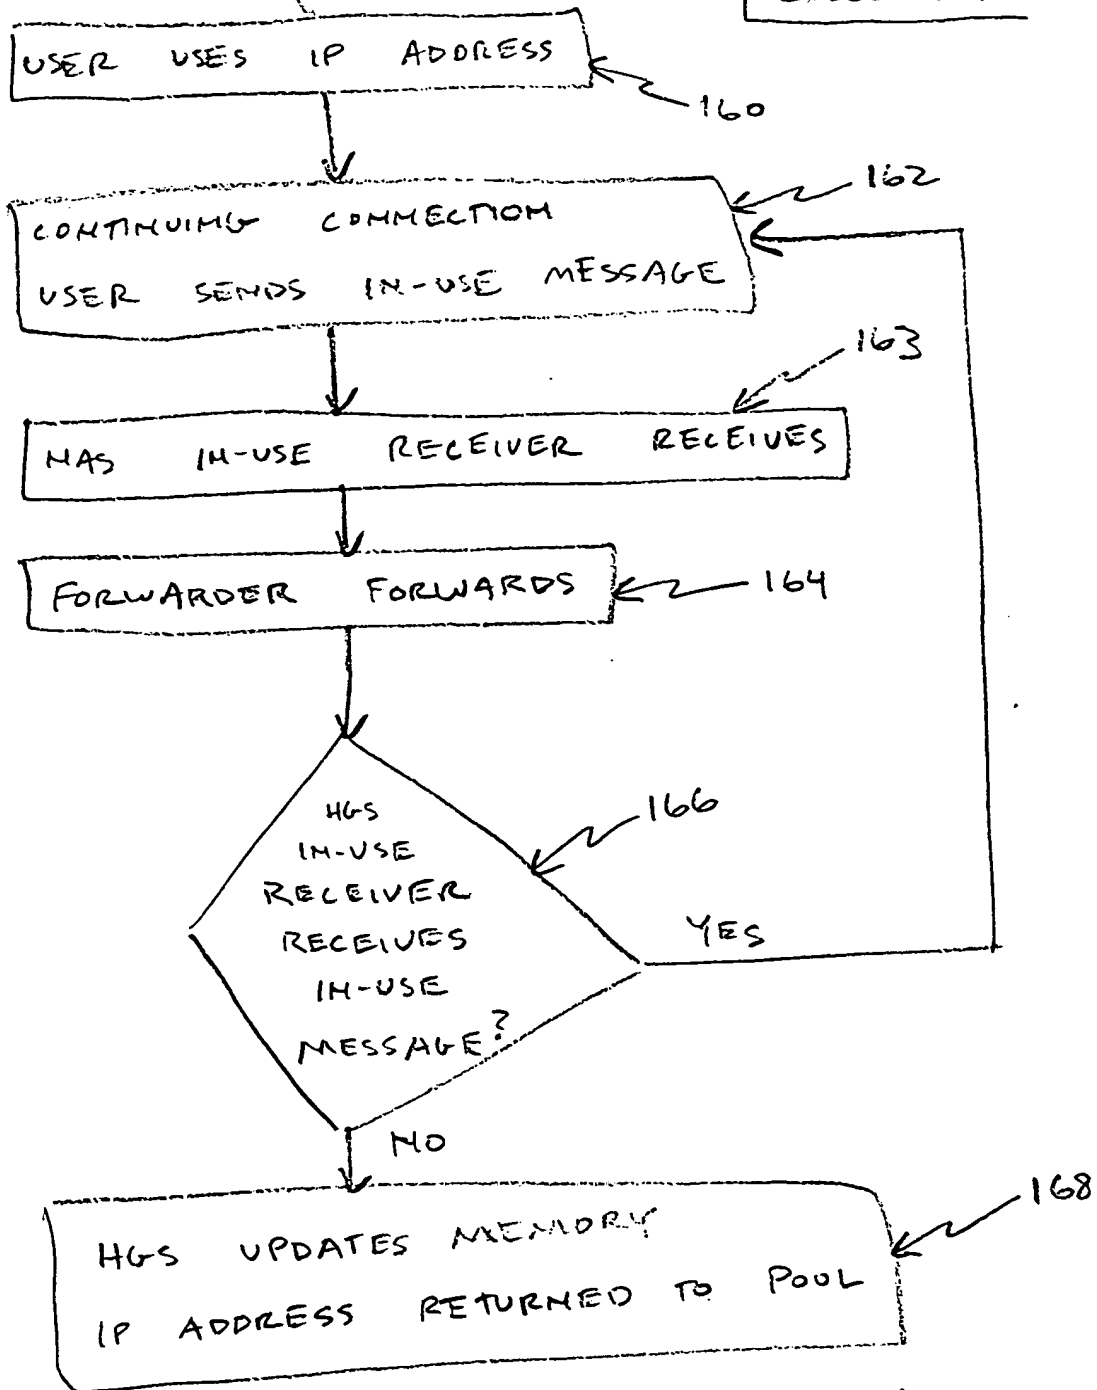 USER USES IP ADDRESS
160
162
CONTINUING CONNECTION
USER SENDS IN-USE MESSAGE
163
NAS IN-USE RECEIVER RECEIVES
FORWARDER FORWARDS
164
HGS
IN-USE
RECEIVER
RECEIVES
IN-USE
MESSAGE?
166
YES
NO
168
HGS UPDATES MEMORY
IP ADDRESS RETURNED TO POOL